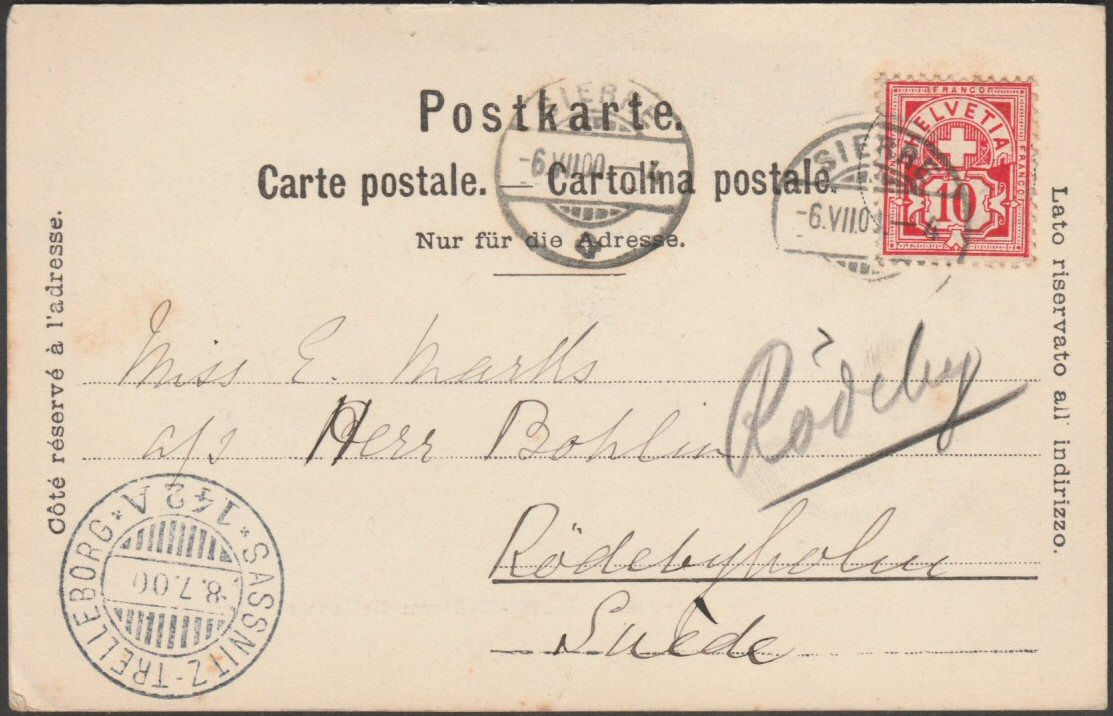 Postkarte.
Carte postale. — Cartolina postale.
Nur für die Adresse.
Côté réservé à l'adresse.
Lato riservato all' indirizzo.
FRANCO
HELVETIA
FRANCO
10
SIERRE
-6.VII.00.—4
SIERRE
-6.VII.00—4
Miss E. Marks
a/s Herr Bohlin
Rödebyholm
Suède
Rödeby
SASSNITZ-TRELLEBORG * 142 A *
8.7.00